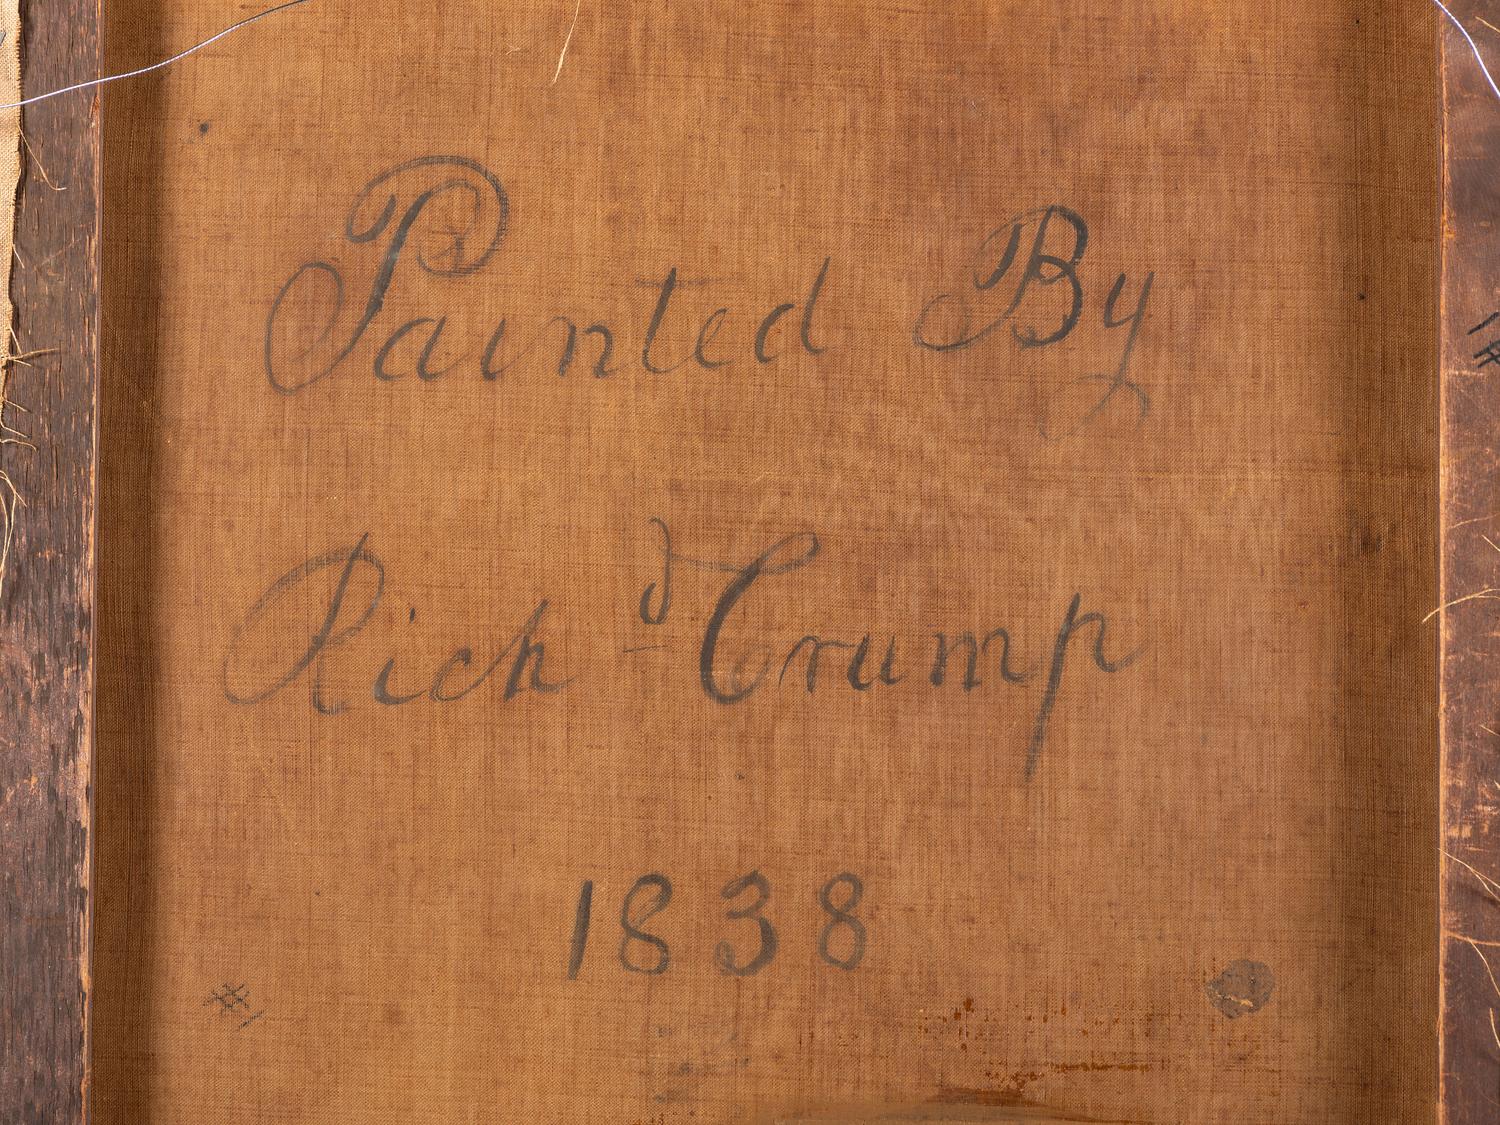 Painted By
Richd Crump
1838
#1